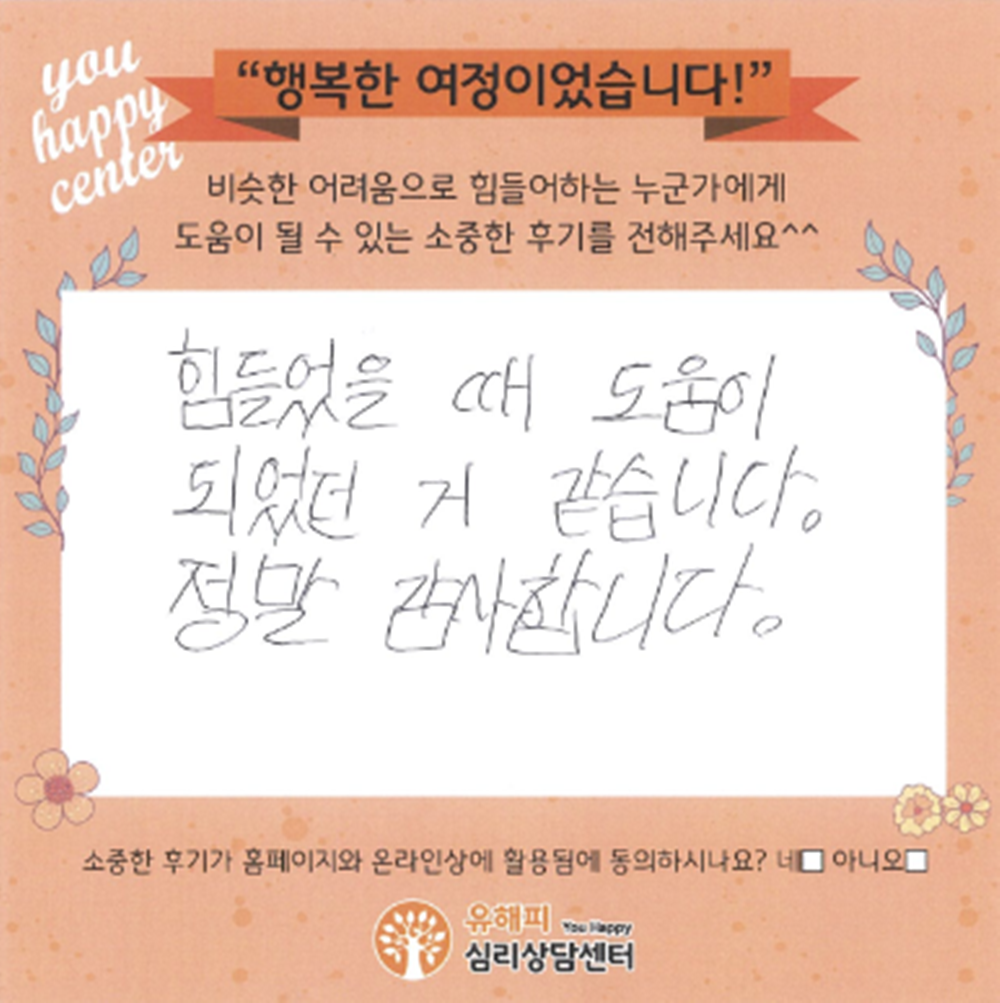 you
happy
center
“행복한 여정이었습니다!”
비슷한 어려움으로 힘들어하는 누군가에게
도움이 될 수 있는 소중한 후기를 전해주세요^^
힘들었을 때 도움이
되었던 거 같습니다.
정말 감사합니다.
소중한 후기가 홈페이지와 온라인상에 활용됨에 동의하시나요? 네□ 아니오□
유해피 You Happy
심리상담센터